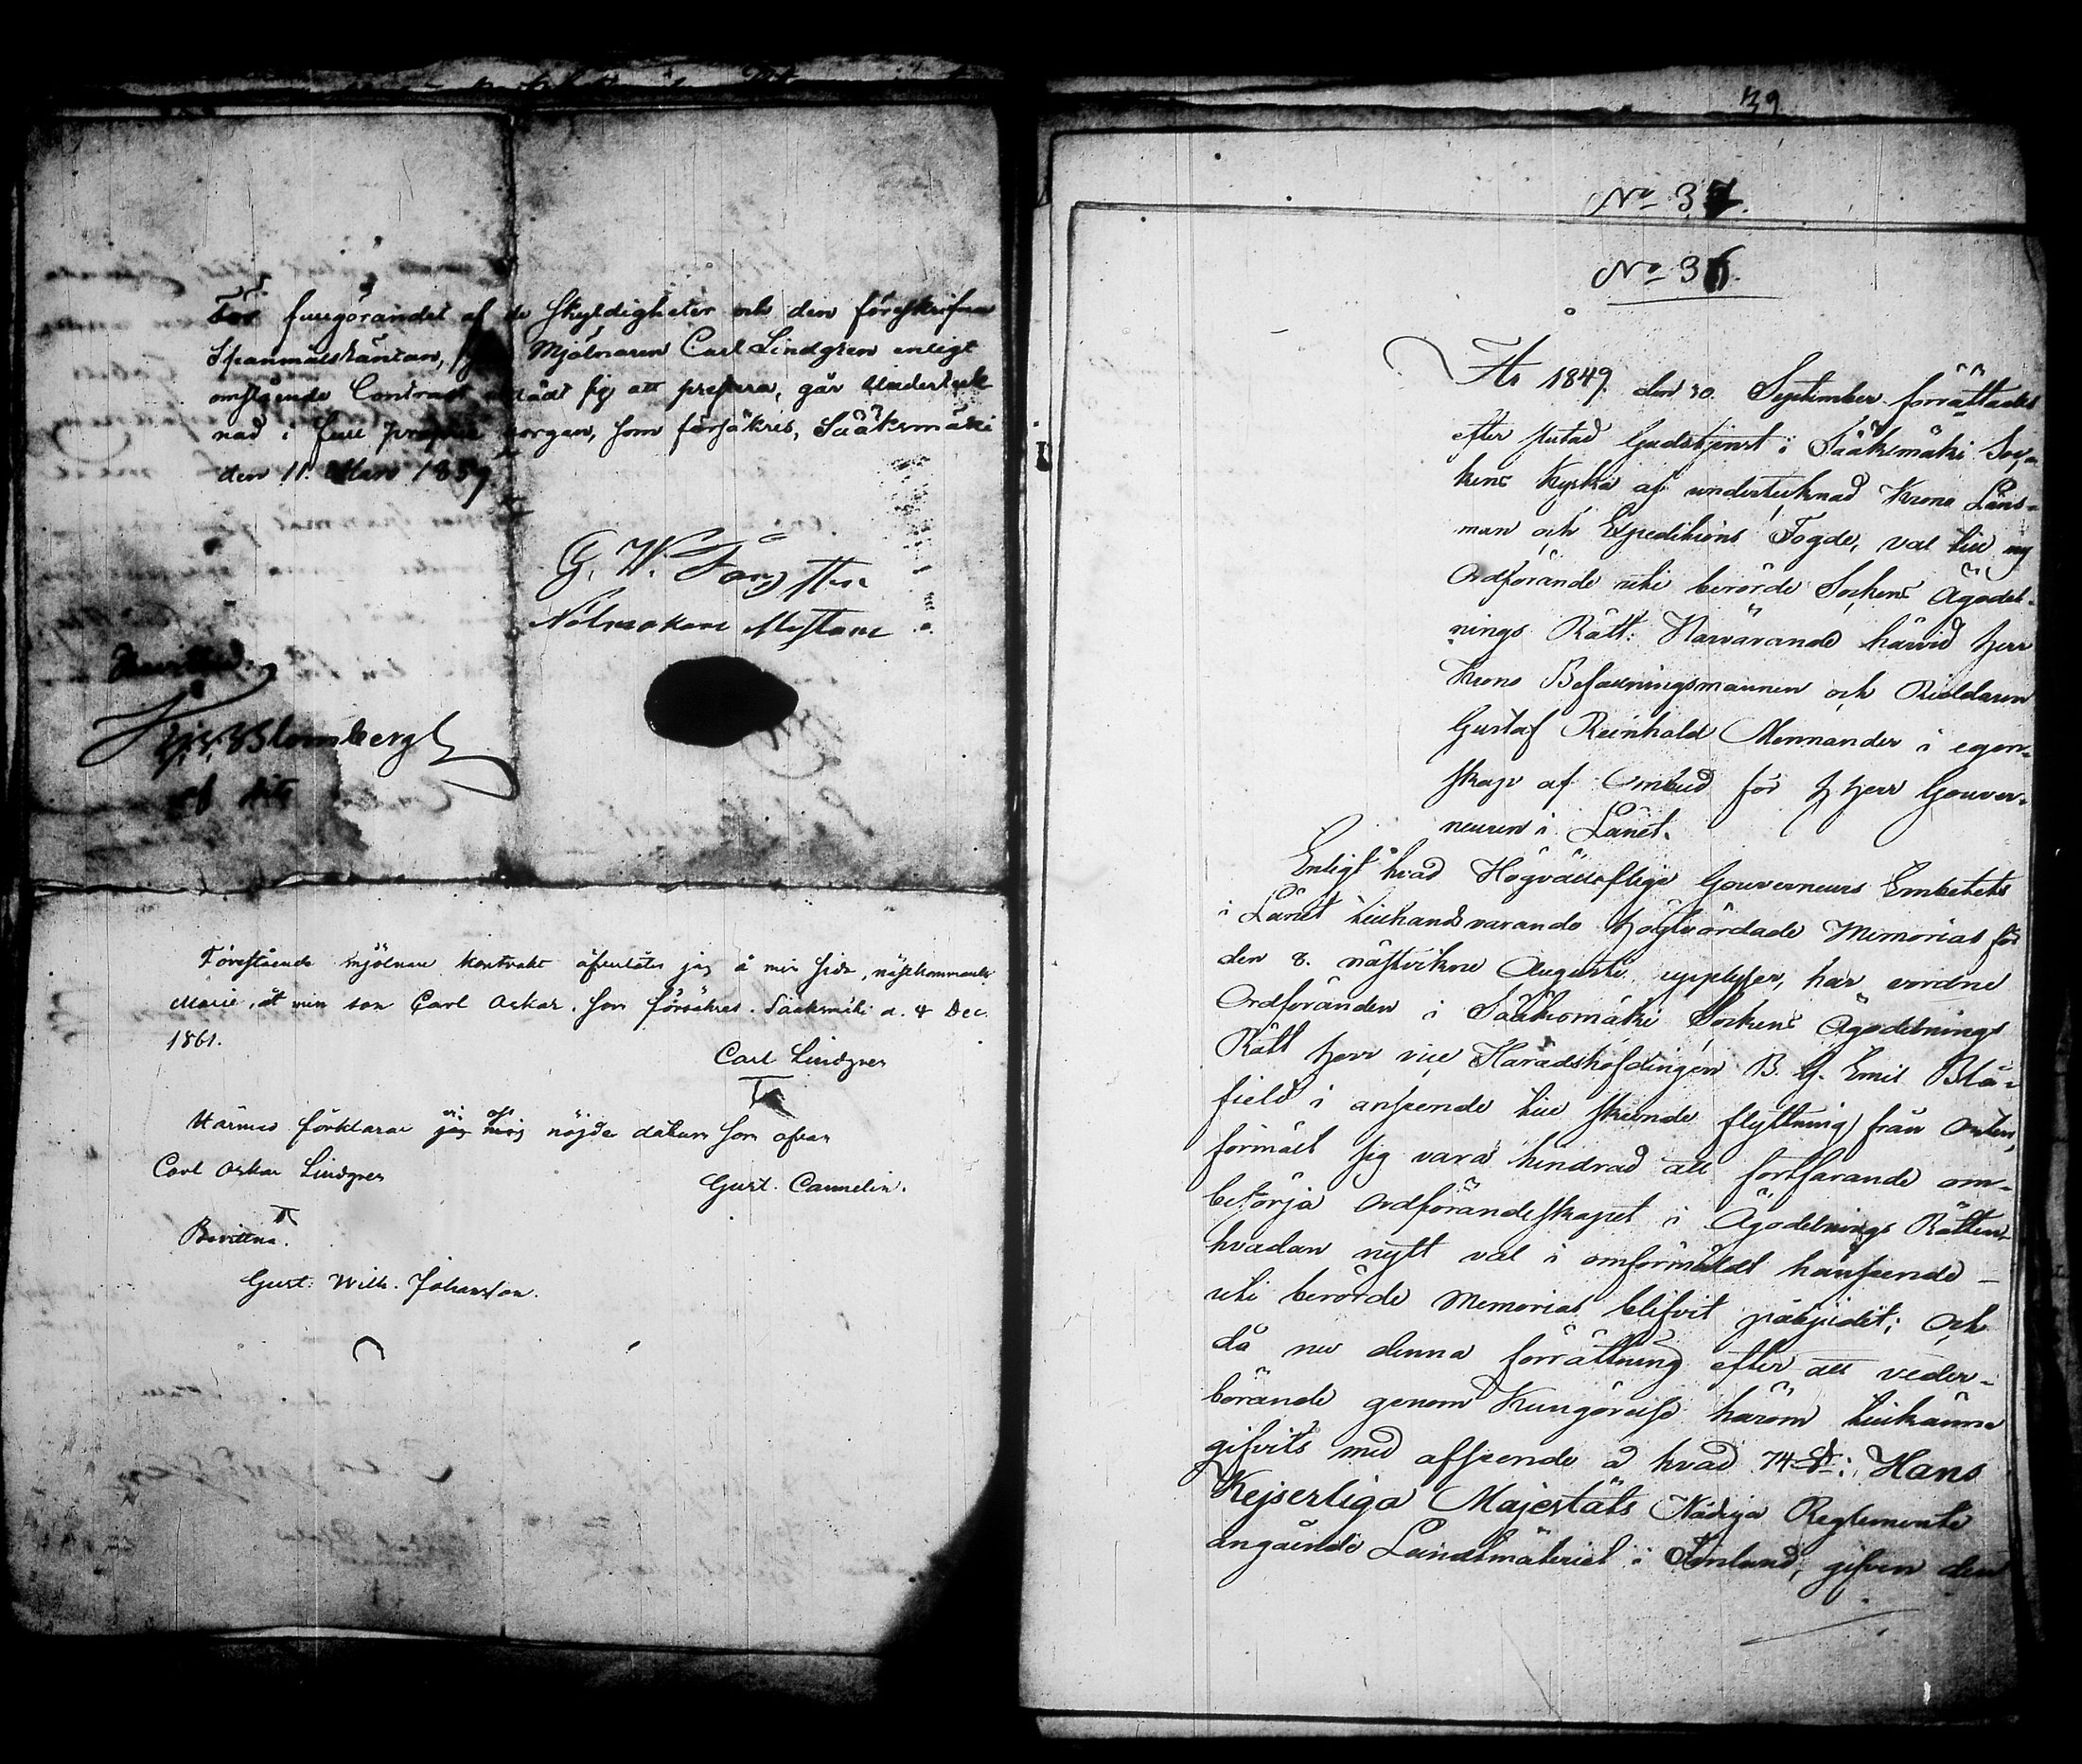 För fullgörandet af de skyldigheter och den föreskrifna
Spanmålsräntan, Mjölnaren Carl Lindgren enligt
omstående Contract åtadt sig att prestera, går Underteck
nad i full proprie borgen, som försäkras, Sääksmäki
den 11. Mars 1859
G. W.
Bevittnad:
Blomberg
Förestående mjölnare kontrakt aflåter jag å min sida, nästkommande
Marie, åt min son Carl Oskar, som försäkras. Sääksmäki d. 4 Dec.
1861.
Carl Lindgren
Härmed förklarar jag mig nöjde datum som ofvan
vi oss
Carl Oskar Lindgren
Gust. Cannelin.
Bevittna.
Gust. Wilh. Johansson.
39
No 37.
No 36.
År 1849 den 30 September förrättades
efter slutad Gudstjenst i Sääksmäki Soc-
kens Kyrka af undertecknad Krono Läns-
man och Expeditions Fogde, val till ny
Ordförande uti berörde Sockens Ägodel-
nings Rätt: Närvarande härvid Herr
Krono Befallningsmannen och Riddaren
Gustaf Reinhold Mennander i egen-
skap af Ombud för H Herr Gouver-
neuren i Länet.
Enligt hvad Högvällofliga Gouverneurs Embetets
i Länet tillhandavarande högtvördade Memorial för
den 8. nästvikne Augusti upplyser, har vordne
Ordföranden i Sääksmäki Sockens Ägodelnings
Rätt Herr vice Häradshöfdingen B. G. Emil Blå-
field i anseende till skeende flyttning från Orten,
förmält sig vara hindrad att fortfarande om-
besörja Ordförandeskapet i Ägodelnings Rätten
hvadan nytt val i omförmäldt hänseende
uti berörde Memorial blifvit påbjudit; Och
då nu denna förrättning efter att veder-
börande genom Kungörelse härom tillkänna
gifvits med afseende å hvad 74 §: Hans
Kejserliga Majestäts Nådiga Reglemente
angående Landtmäteriet i Finland, gifven den